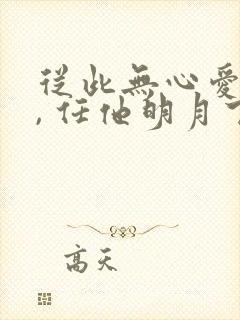 從此無心愛
, 任他明月
高天